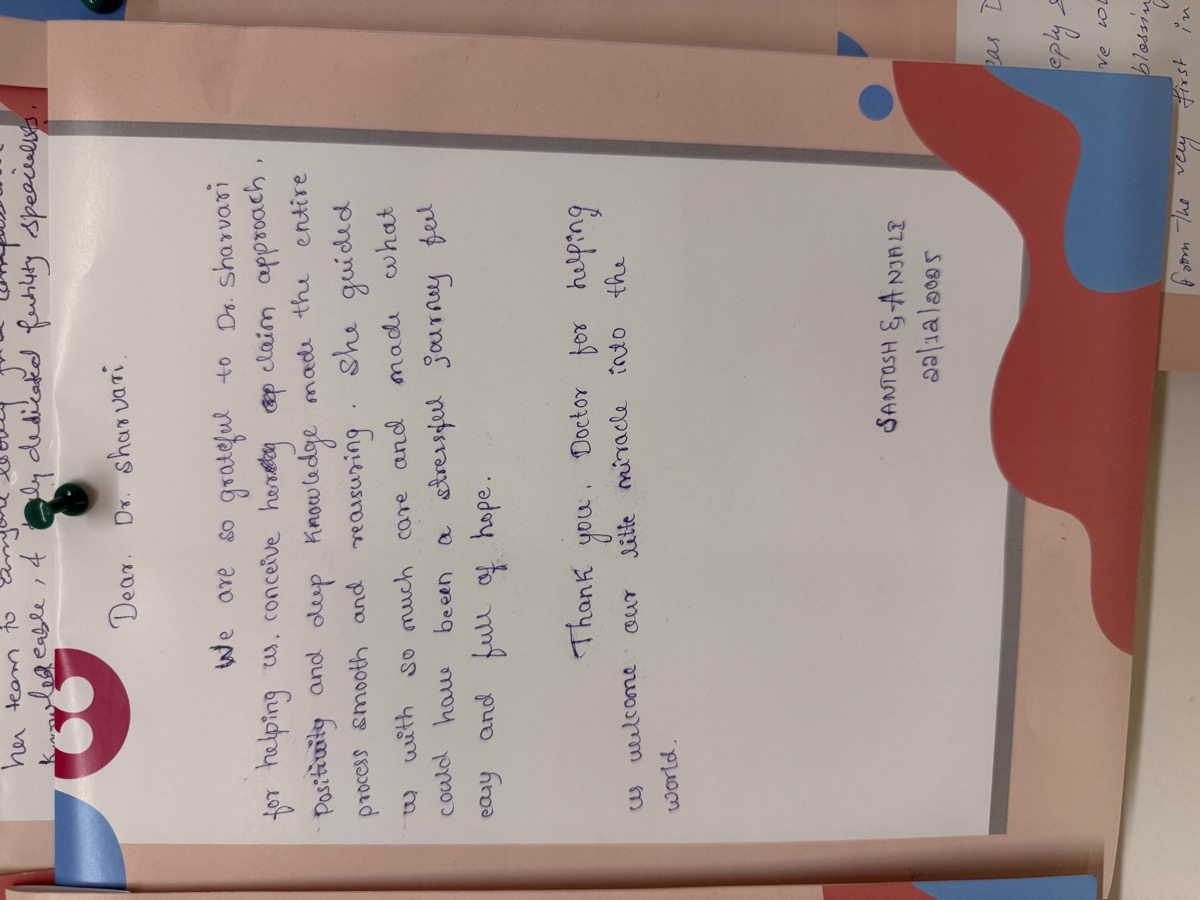 her team to anyone looking for a
knowledgeable, & truly dedicated fertility specialists.
Dear. Dr. Sharvari.
We are so grateful to Dr. Sharvari
for helping us. conceive her claim approach,
Positivity and deep knowledge made the entire
process smooth and reassuring. She guided
us with so much care and made what
could have been a stressful journey feel
easy and full of hope.
Thank you, Doctor for helping
us welcome our little miracle into the
world.
SANTOSH & ANJALI
22/12/2025
eply
blessing
from the very first in